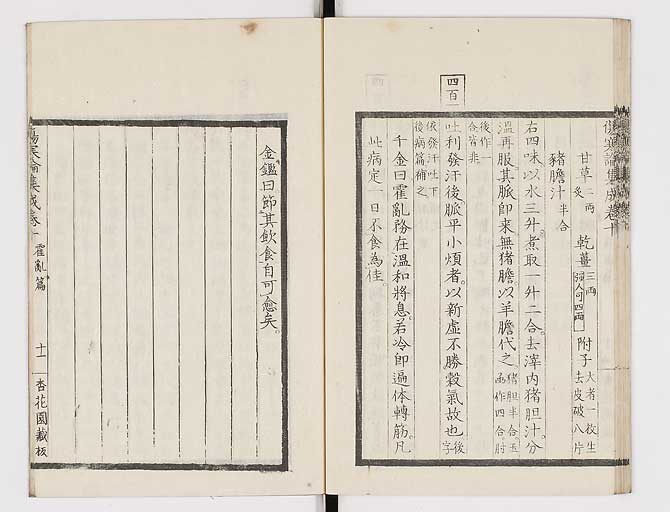 甘草二兩炙 乾薑三兩强人可四兩 附子大者一枚生去皮破八片
豬膽汁半合
右四味以水三升煮取一升二合去滓内猪胆汁分
溫再服其脈即来無猪膽以羊膽代之猪胆半合玉函作四合肘
後作一合皆非
四百
吐利發汗後脈平小煩者以新虛不勝穀氣故也後字
依發汗吐下後病篇補之
千金曰霍亂務在溫和將息若冷即遍体轉筋凡
此病定一日不食為佳
金鑑曰節其飲食自可愈矣
傷寒論集成卷十
霍亂篇
十一
杏花園藏板